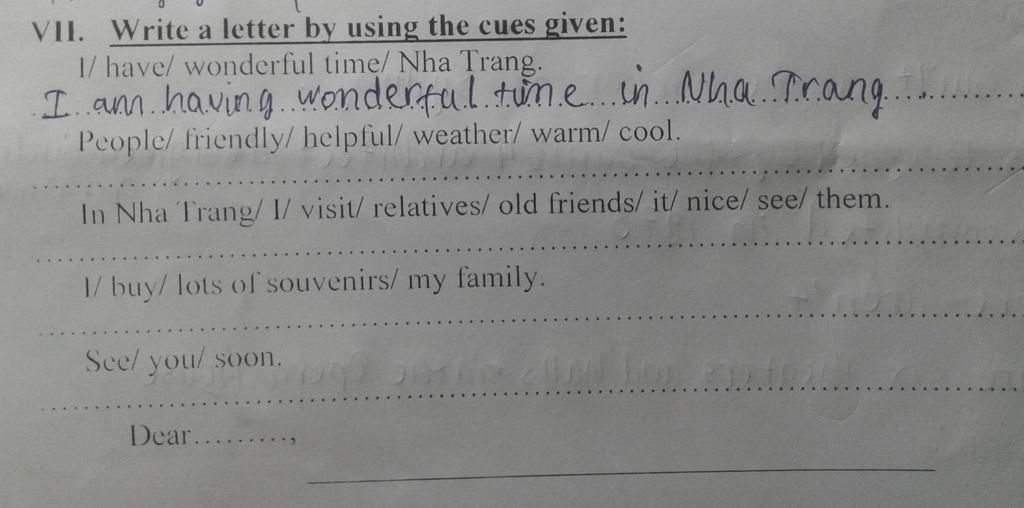 VII. Write a letter by using the cues given:
I/ have/ wonderful time/ Nha Trang.
I am having wonderful time in Nha Trang
People/ friendly/ helpful/ weather/ warm/ cool.
In Nha Trang/ I/ visit/ relatives/ old friends/ it/ nice/ see/ them.
I/ buy/ lots of souvenirs/ my family.
See/ you/ soon.
Dear..........,